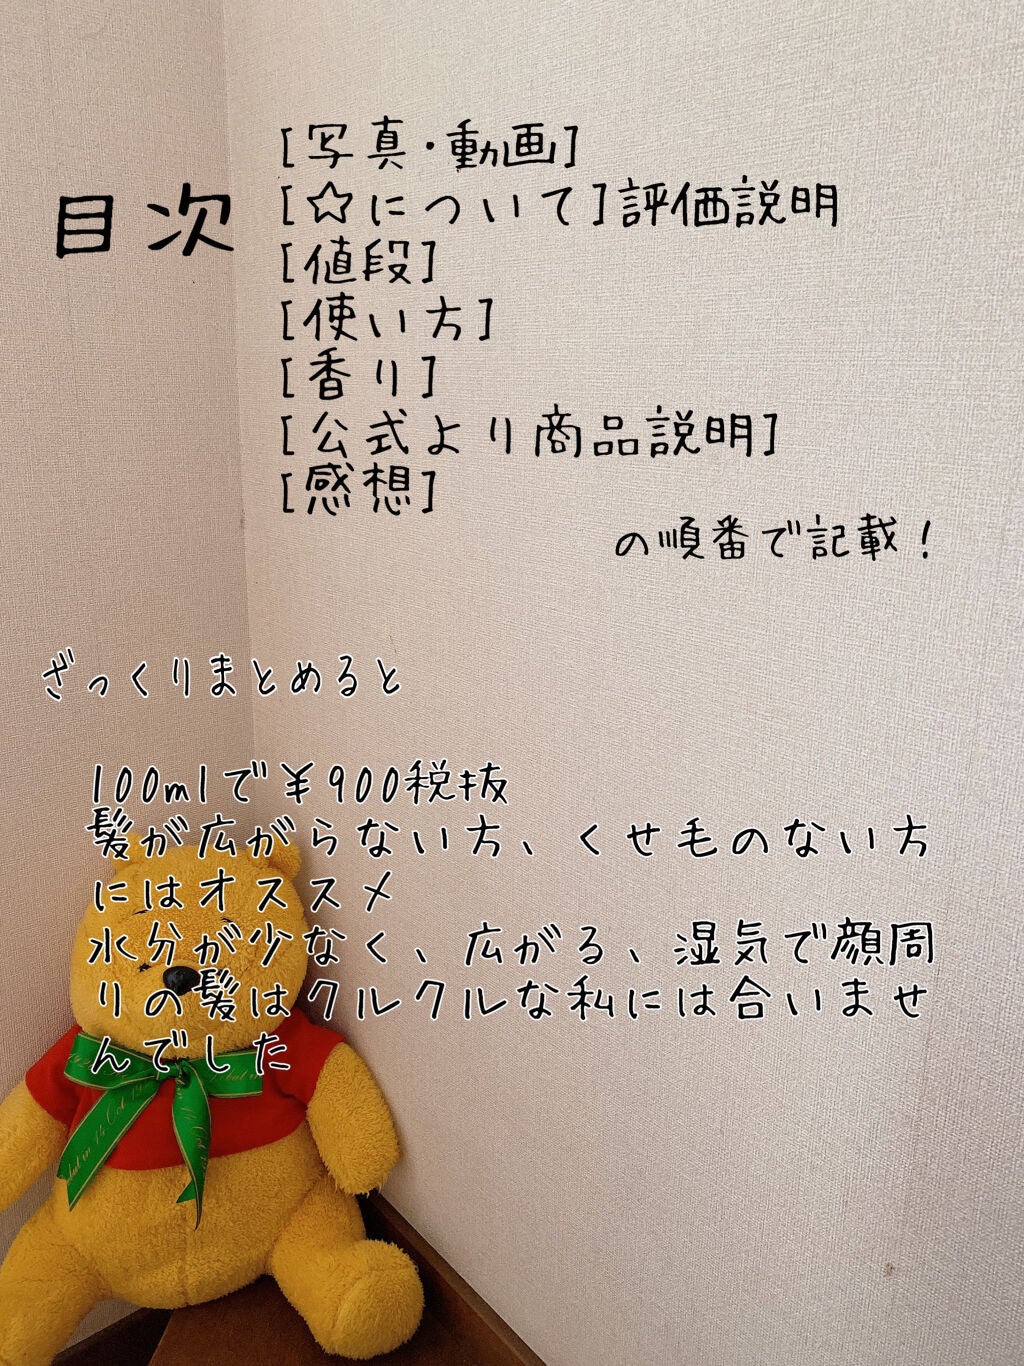 目次
[写真・動画]
[☆について]評価説明
[値段]
[使い方]
[香り]
[公式より商品説明]
[感想]
の順番で記載！
ざっくりまとめると
100mlで¥900税抜
髪が広がらない方、くせ毛のない方
にはオススメ
水分が少なく、広がる、湿気で顔周
りの髪はクルクルな私には合いませ
んでした